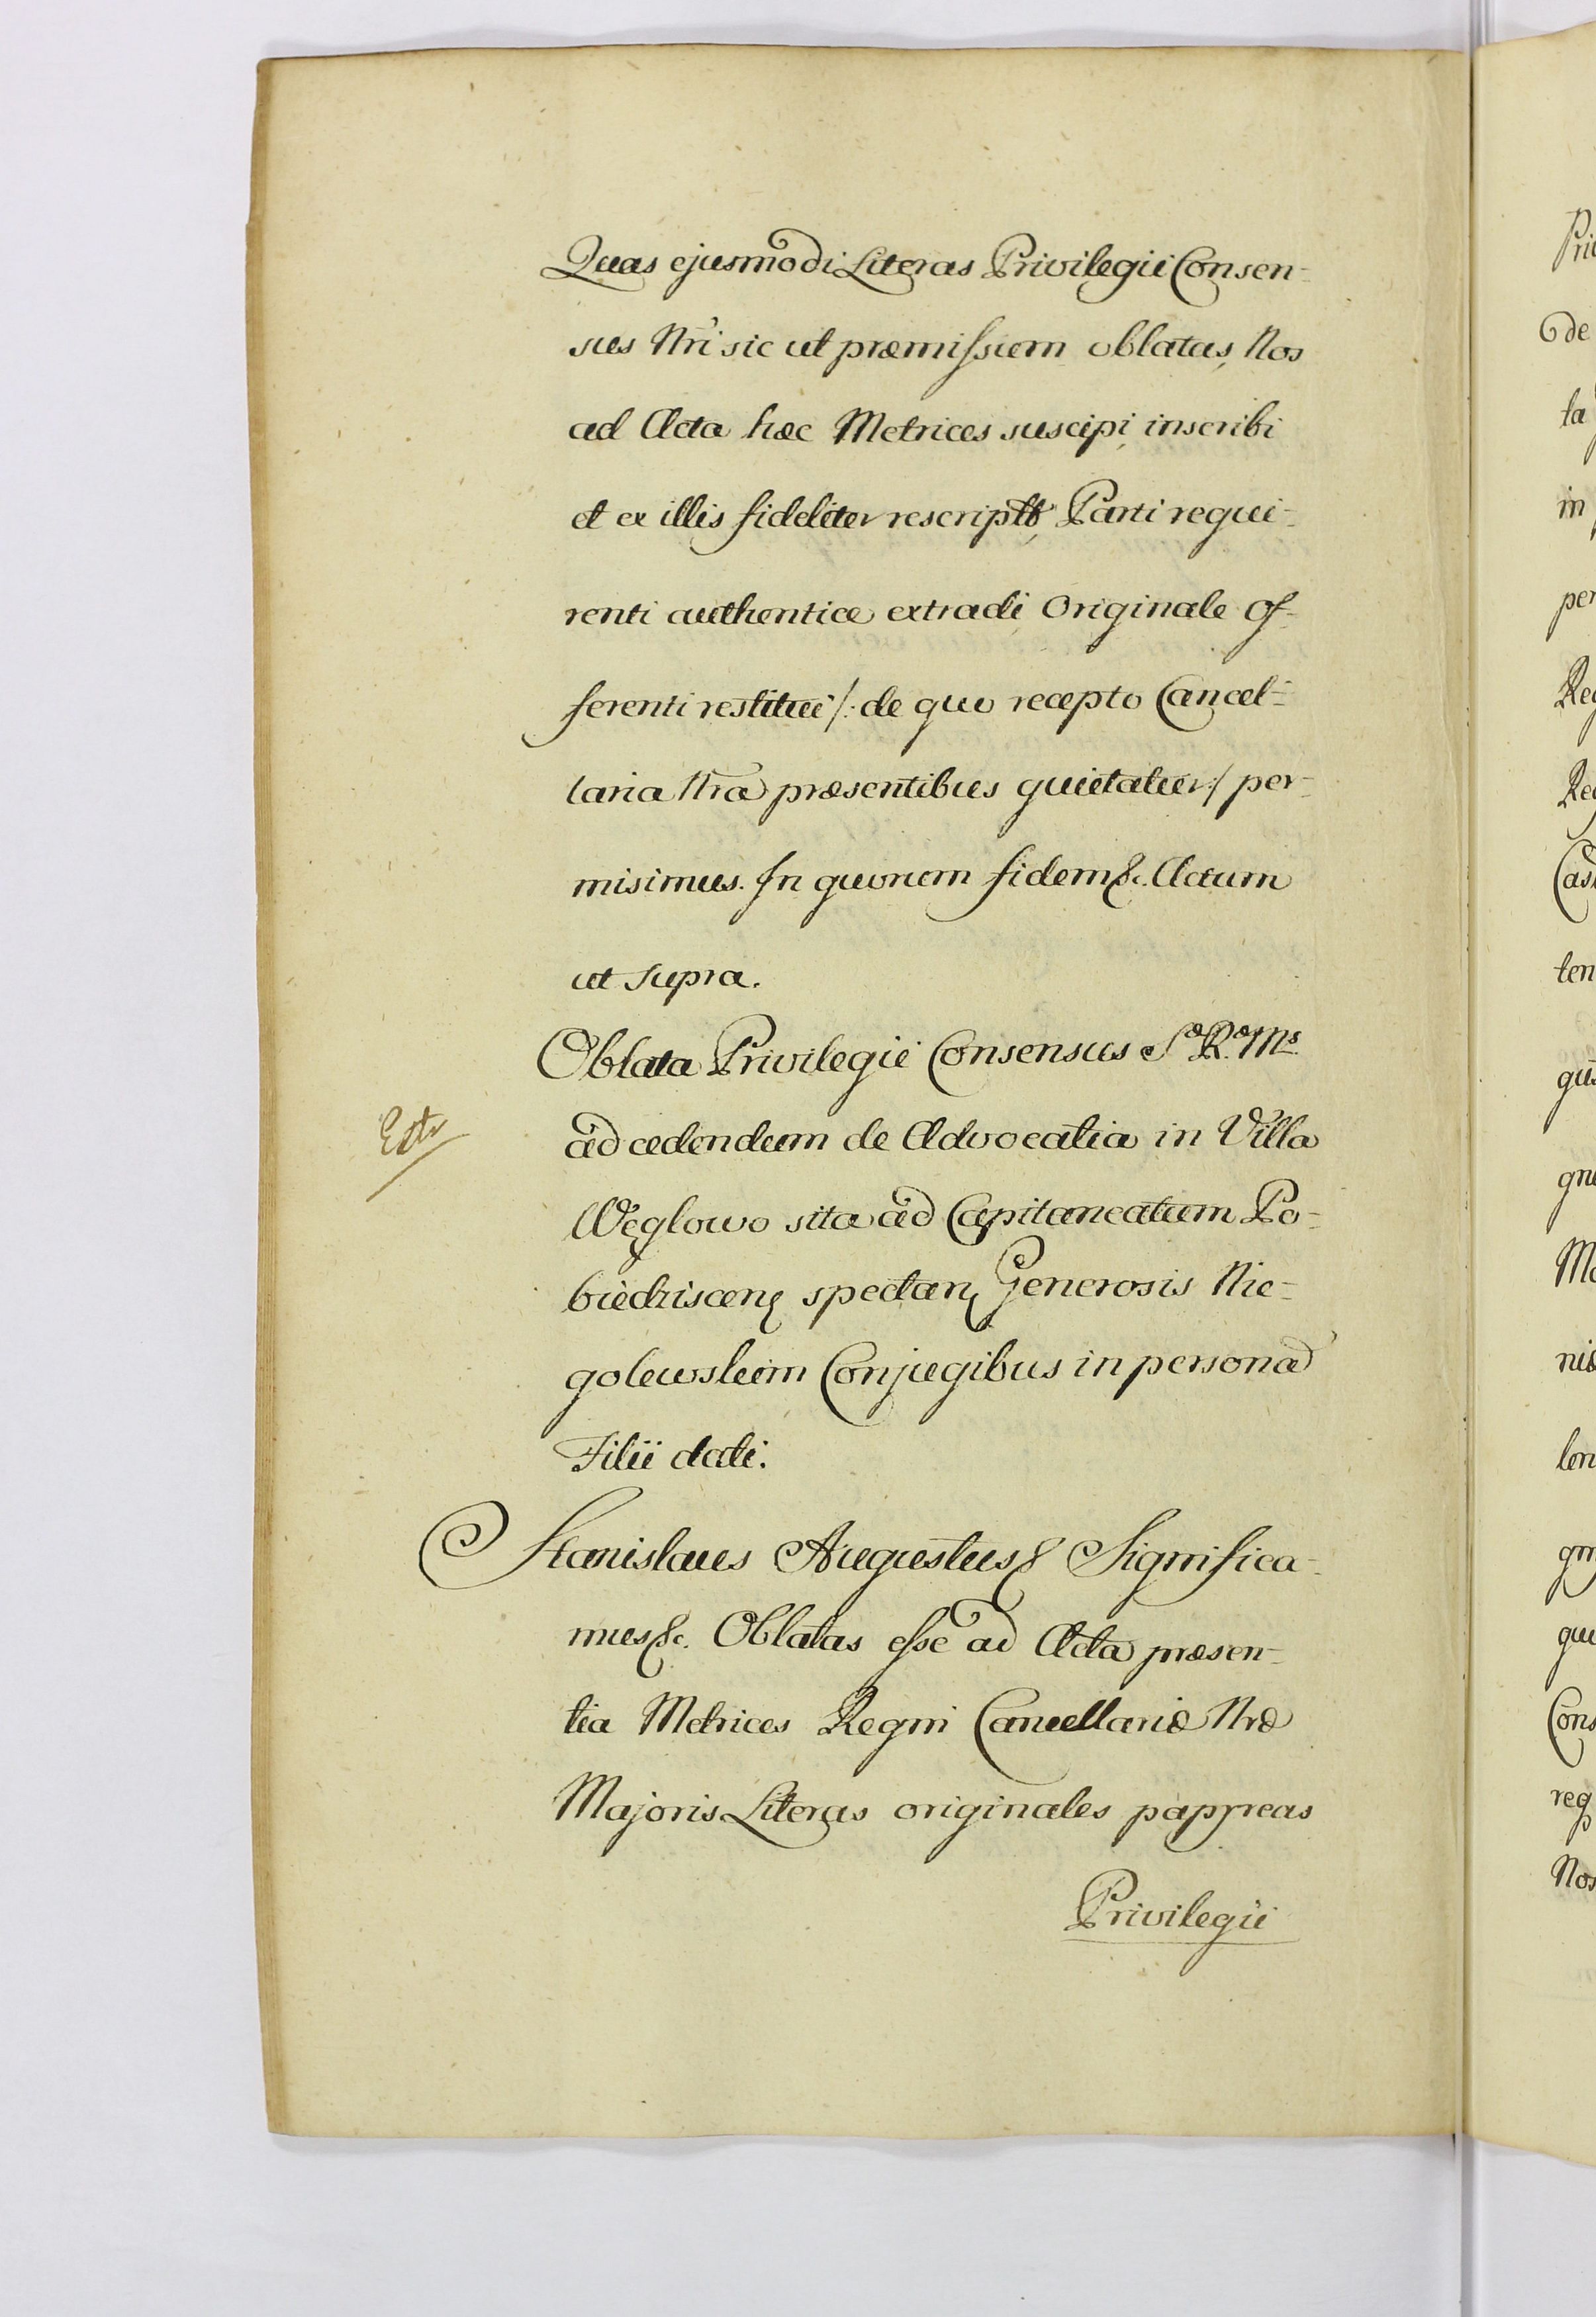 Quas ejusmodi Literas Privilegii Consen-
sus Nri sic ut præmissum oblatas, Nos
ad Acta hæc Metrices suscipi, inscribi
et ex illis fideliter rescriptas, Parti requi-
renti authentice extradi, Originale of-
ferenti restitui /: de quo recepto Cancel-
laria Nra præsentibus quietatur :/ per-
misimus. In quorum fidem &c. Actum
ut supra.
Oblata Privilegii Consensus Sæ Ræ Mis
Extr
ad cedendum de Advocatia in Villa
Węglowo sita ad Capitaneatum Po-
biedziscen spectan Generosis Nie-
golewskim Conjugibus in persona
Filii dati.
Stanislaus Augustus & Significa-
mus &c. Oblatas esse ad Acta præsen-
tia Metrices Regni Cancellariæ Nræ
Majoris Literas originales papyreas
Privilegii
Pri
de
ta
in
per
Reg
Reg
Cas
ten
gne
Ma
nis
len
gm
que
Cons
reg
Nos